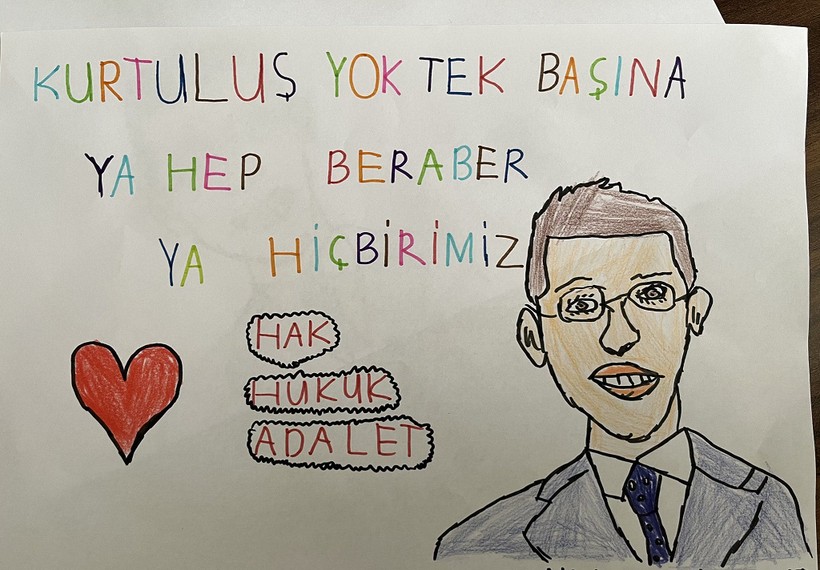 KURTULUŞ YOK TEK BAŞINA
YA HEP BERABER
YA HİÇBİRİMİZ
HAK
HUKUK
ADALET